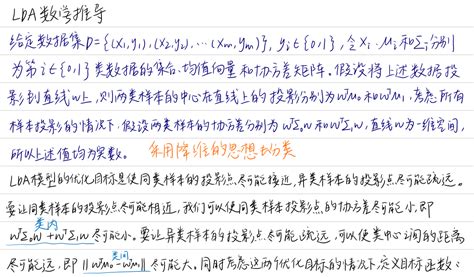 LDA数学推导
给定数据集D={(x₁,y₁),(x₂,y₂),…(xₘ,yₘ)}, yᵢ∈{0,1}, 令Xᵢ、μᵢ和Σᵢ分别
为第i∈{0,1}类数据的集合、均值向量和协方差矩阵。假设将上述数据投
影到直线w上,则两类样本的中心在直线上的投影分别为wᵀμ₀和wᵀμ₁,考虑所有
样本投影的情况下,假设两类样本的协方差分别为wᵀΣ₀w和wᵀΣ₁w,直线w为一维空间,
所以上述值均为实数。 采用降维的思想去分类
LDA模型的优化目标是使同类样本的投影点尽可能接近,异类样本的投影点尽可能疏远。
要让同类样本的投影点尽可能相近,我们可以使同类样本投影点的协方差尽可能小,即
类内
wᵀΣ₀w+wᵀΣ₁w尽可能小。要让异类样本的投影点尽可能疏远,可以使类中心间的距离
类间
尽可能远,即||wᵀμ₀-wᵀμ₁||尽可能大。同时考虑这两个优化目标的情况下,定义目标函数: